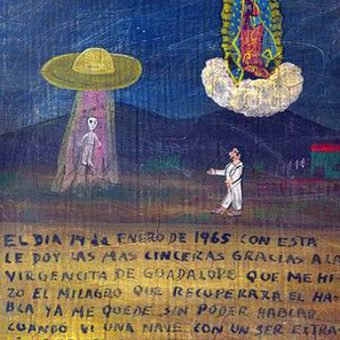 EL DIA 14 de ENERO DE 1965 CON ESTA
LE DOY LAS MAS CINCERAS GRACIAS A LA
VIRGENCITA DE GUADALOPE QUE ME HI-
ZO EL MILAGRO QUE RECUPERARA EL HA-
BLA YA ME QUEDE SIN PODER HABLAR
CUANDO VI UNA NAVE CON UN SER EXTRA-